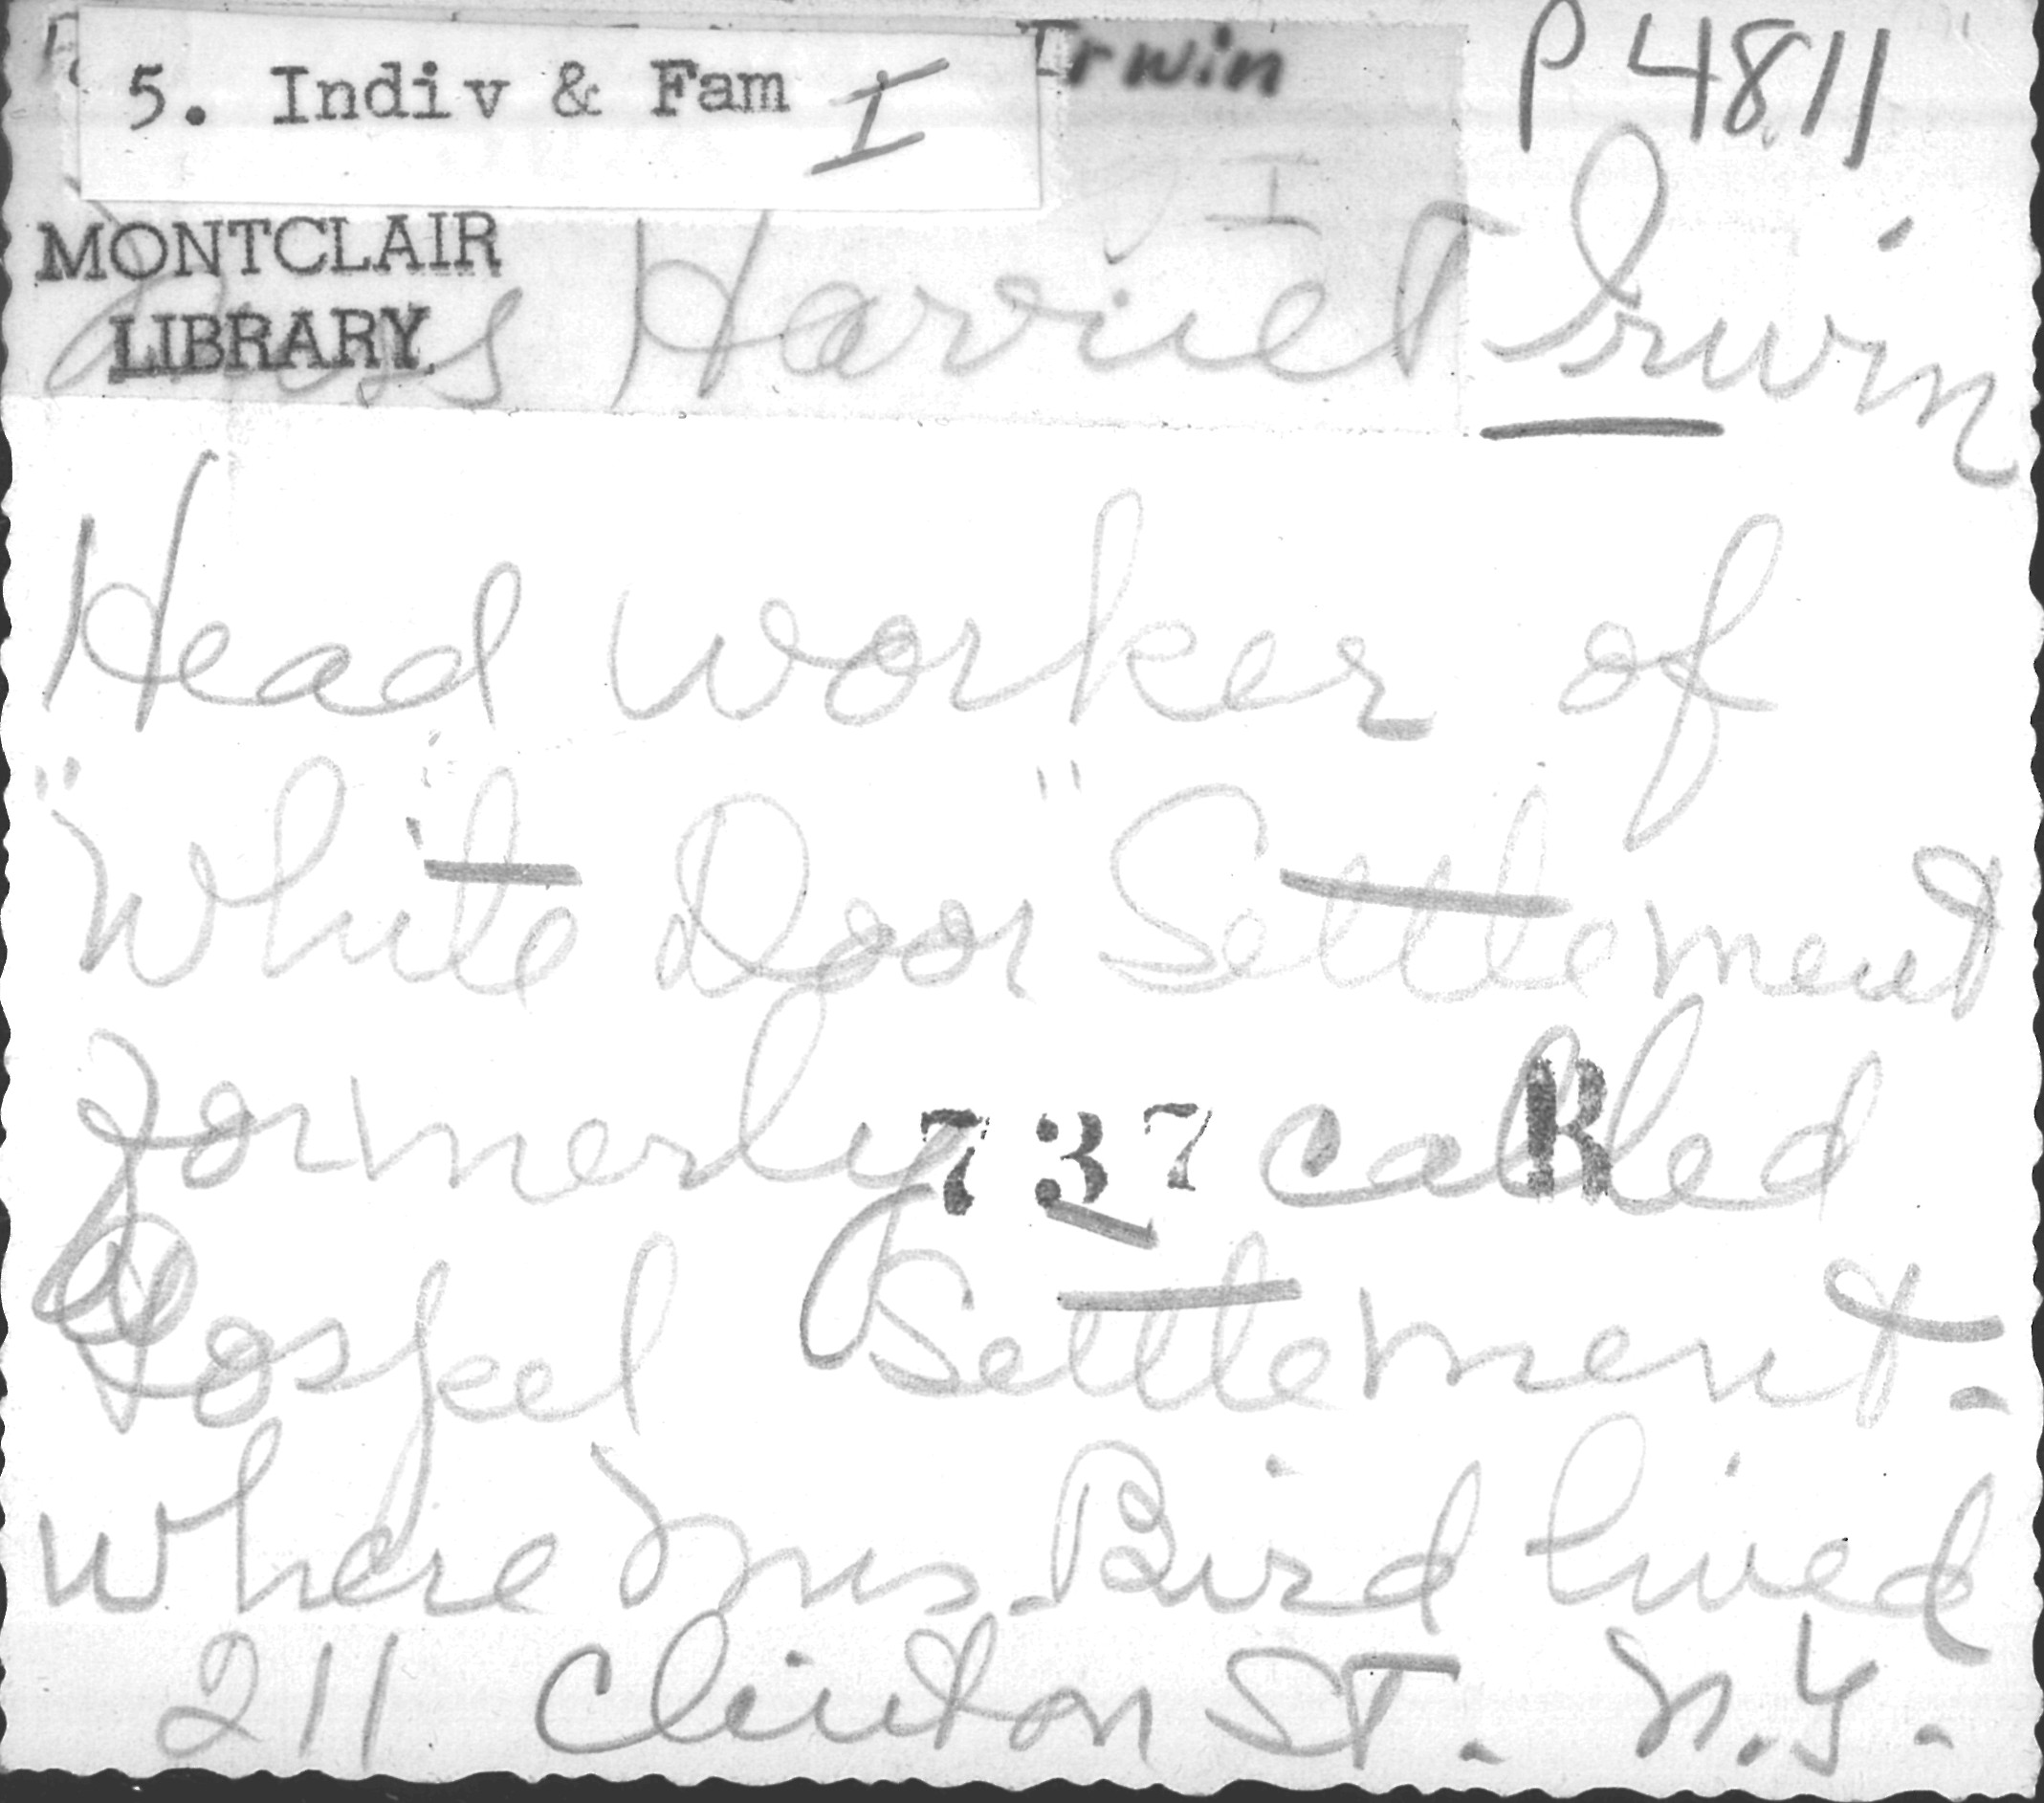 5. Indiv & Fam I
Irwin
P 4811
I
MONTCLAIR
LIBRARY
Miss Harriet Irwin
Head worker of
"White Door" Settlement
formerly called
737 R
Gospel Settlement.
where Mrs. Bird lived
211 Clinton ST. N.Y.